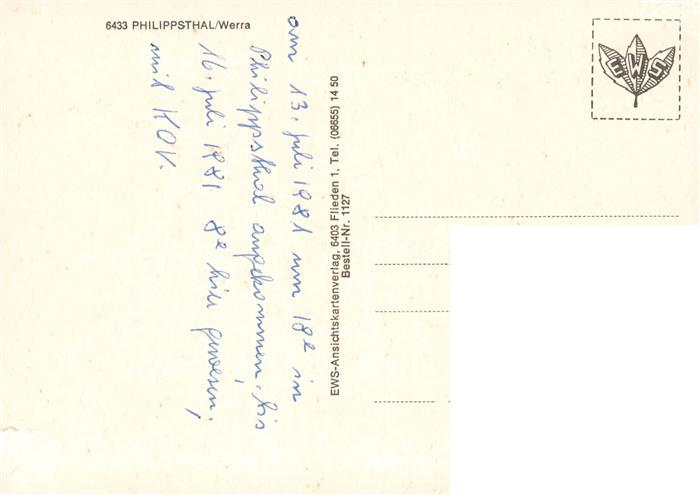 6433 PHILIPPSTHAL/Werra
am 13. Juli 1981 um 18e in
Philippsthal angekommen, bis
16. Juli 1981 8e hier gewesen,
mit KOV.
EWS-Ansichtskartenverlag, 6403 Flieden 1, Tel. (06655) 14 50
Bestell-Nr. 1127
EWS